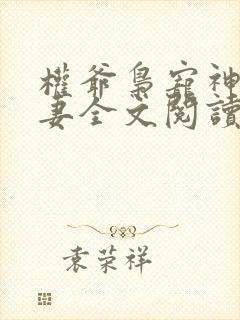 權爺梟寵神
妻全文閱讀
袁荣祥